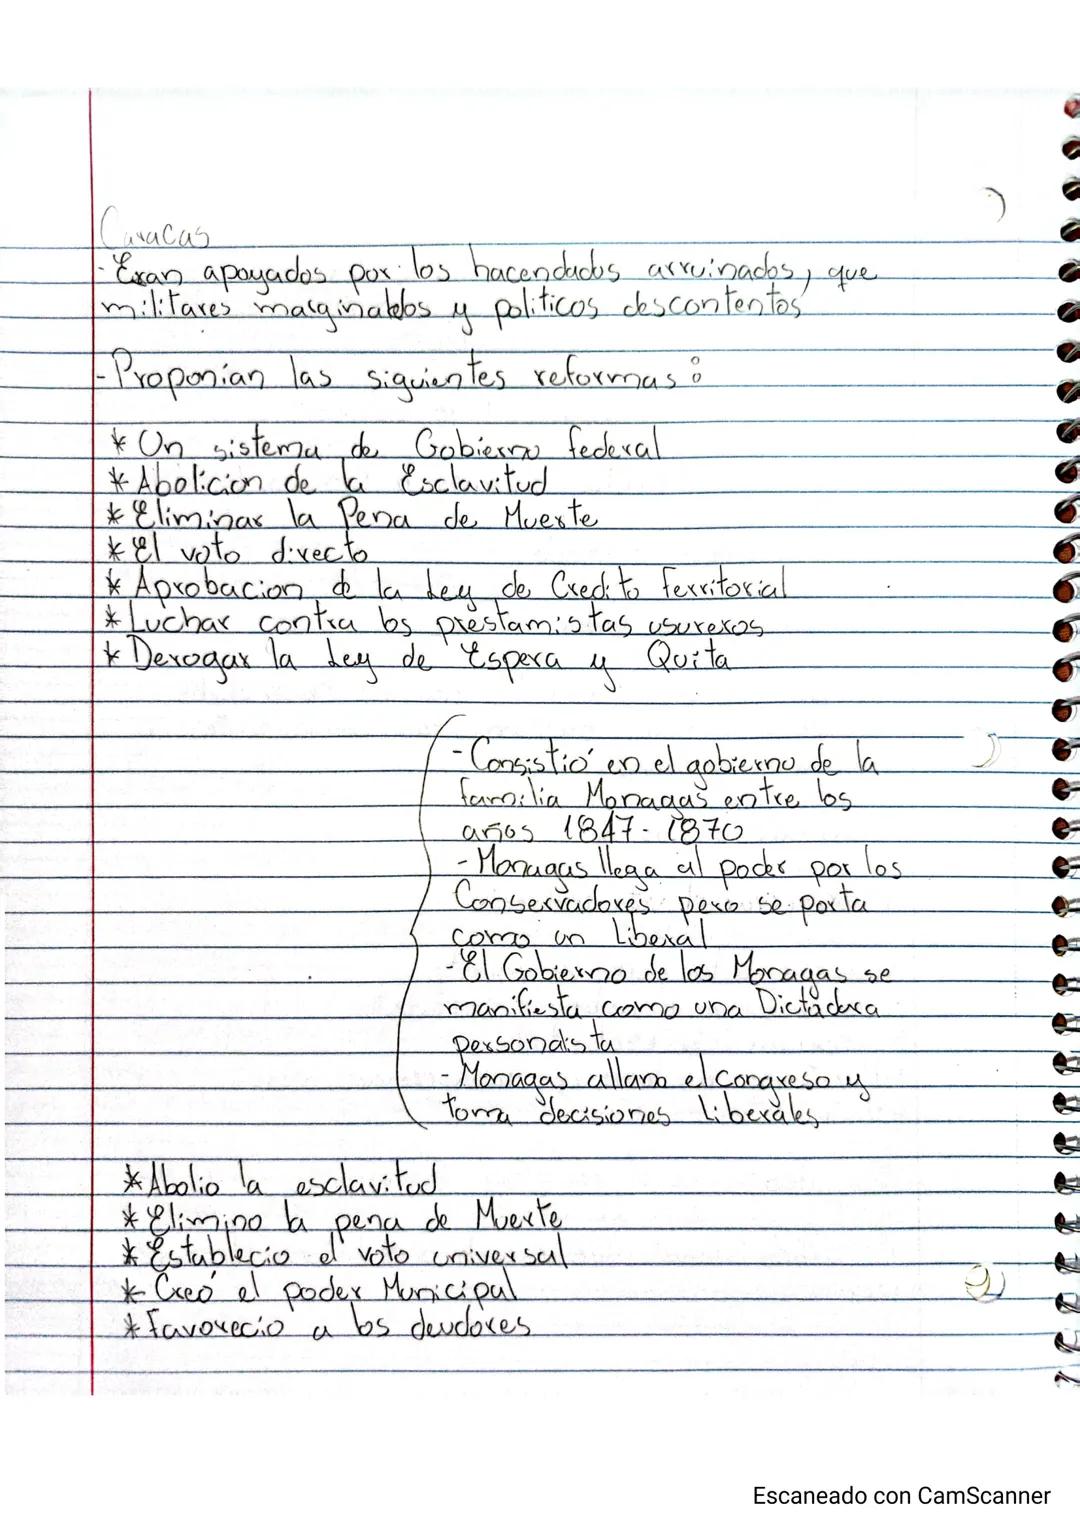 Caracas
- Eran apoyados por los hacendados arruinados, que
militares marginados y politicos descontentos
- Proponian las siguientes reformas:
* Un sistema de Gobierno federal
* Abolicion de la Esclavitud
* Eliminar la Pena de Muerte
* El voto directo
* Aprobacion de la Ley de Credito Territorial
* Luchar contra los prestamistas usureros
* Derogar la Ley de Espera y Quita
- Consistió en el gobierno de la
familia Monagas entre los
años 1847-1870
- Monagas llega al poder por los
Conservadores pero se porta
como un Liberal
- El Gobierno de los Monagas se
manifiesta como una Dictadura
personalista
- Monagas allana el Congreso y
toma decisiones Liberales
* Abolio la esclavitud
* Elimino la pena de Muerte
* Establecio el voto universal
* Creó el poder Municipal
* Favorecio a los deudores
Escaneado con CamScanner